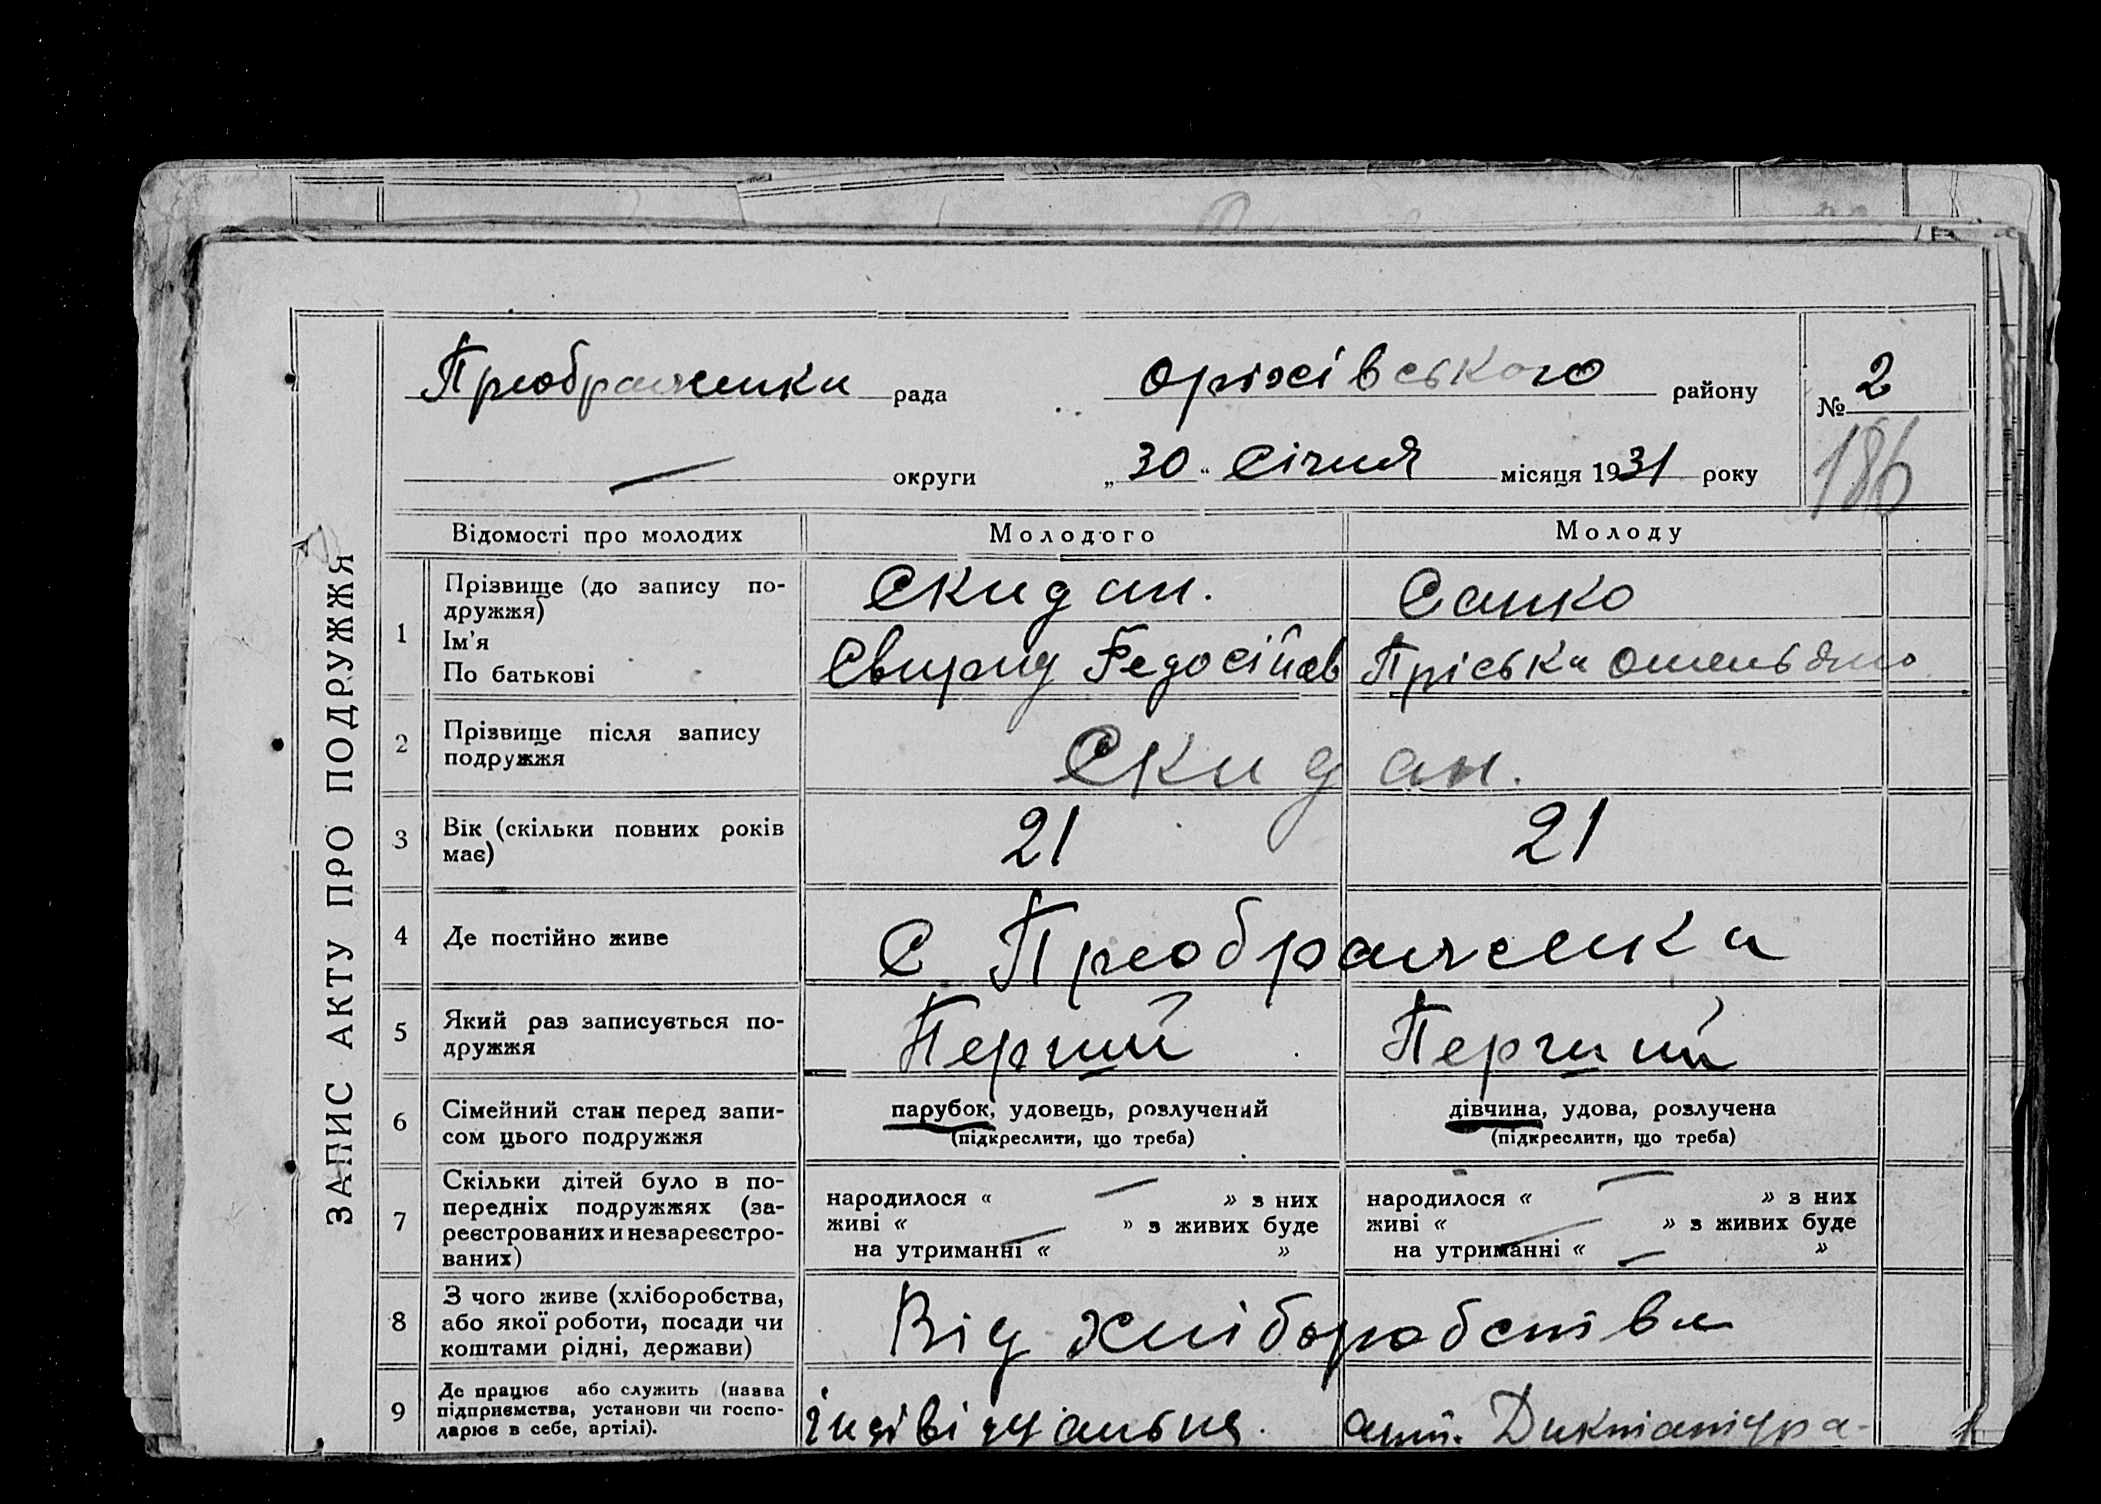 ЗАПИС АКТУ ПРО ПОДРУЖЖЯ
Преображенка рада Оріхівського району № 2
округи „30“ Січня місяця 1931 року 186
Відомості про молодих Молодого Молоду
1 Прізвище (до запису по-
дружжя) Скидан. Санко
Ім'я
По батькові Свирид Федосіїов Пріська Омельяно
2 Прізвище після запису
подружжя Скидан.
3 Вік (скільки повних років
має) 21 21
4 Де постійно живе С Преображенка
5 Який раз записується по-
дружжя Перший Перший
6 Сімейний стан перед запи-
сом цього подружжя
парубок, удовець, розлучений дівчина, удова, розлучена
(підкреслити, що треба) (підкреслити, що треба)
7 Скільки дітей було в по-
передніх подружжях (за-
реєстрованих и незареєстро-
ваних)
народилося « — » з них народилося « — » з них
живі « — » з живих буде живі « — » з живих буде
на утриманні « » на утриманні « — »
8 З чого живе (хліборобства,
або якої роботи, посади чи
коштами рідні, держави) Від хліборобства
9 Де працює або служить (назва
підприємства, установи чи госпо-
дарює в себе, артілі). індівідуальна. арт. Диктатура-